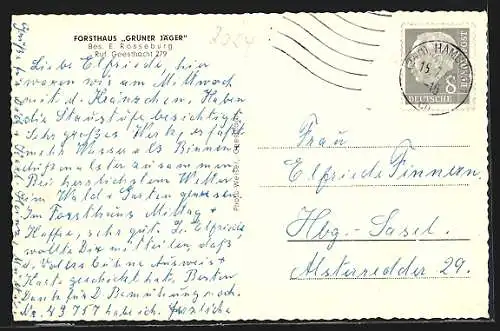 FORSTHAUS „GRÜNER JÄGER"
Bes. E. Rosseburg
Ruf Geesthacht 279
Liebe Elfriede, hier
waren wir am Mittwoch
mit d. Heinzchen. Haben
die Staustufe besichtigt
Sehr großes Werk, es faßt
mehr Wasser als Binnen
+ Außenalster zusammen
Bei herrlichstem Wetter
im Wald + Garten gesessen
Im Forsthaus Mittag +
Kaffee, sehr gut. L. Elfriede
wollte Dir mitteilen, daß
d. Volksbühne Ausweis +
Karte geschickt hat. Besten
Dank für D. Bemühung noch.
Nr. 43757 habe ich. Herzliche
Photo-Weiser, Geesthacht
HAMBURG
15
-16
8
DEUTSCHE
POST
Frau
Elfriede Finnern
Hbg.-Sasel.
Alsterredder 29.